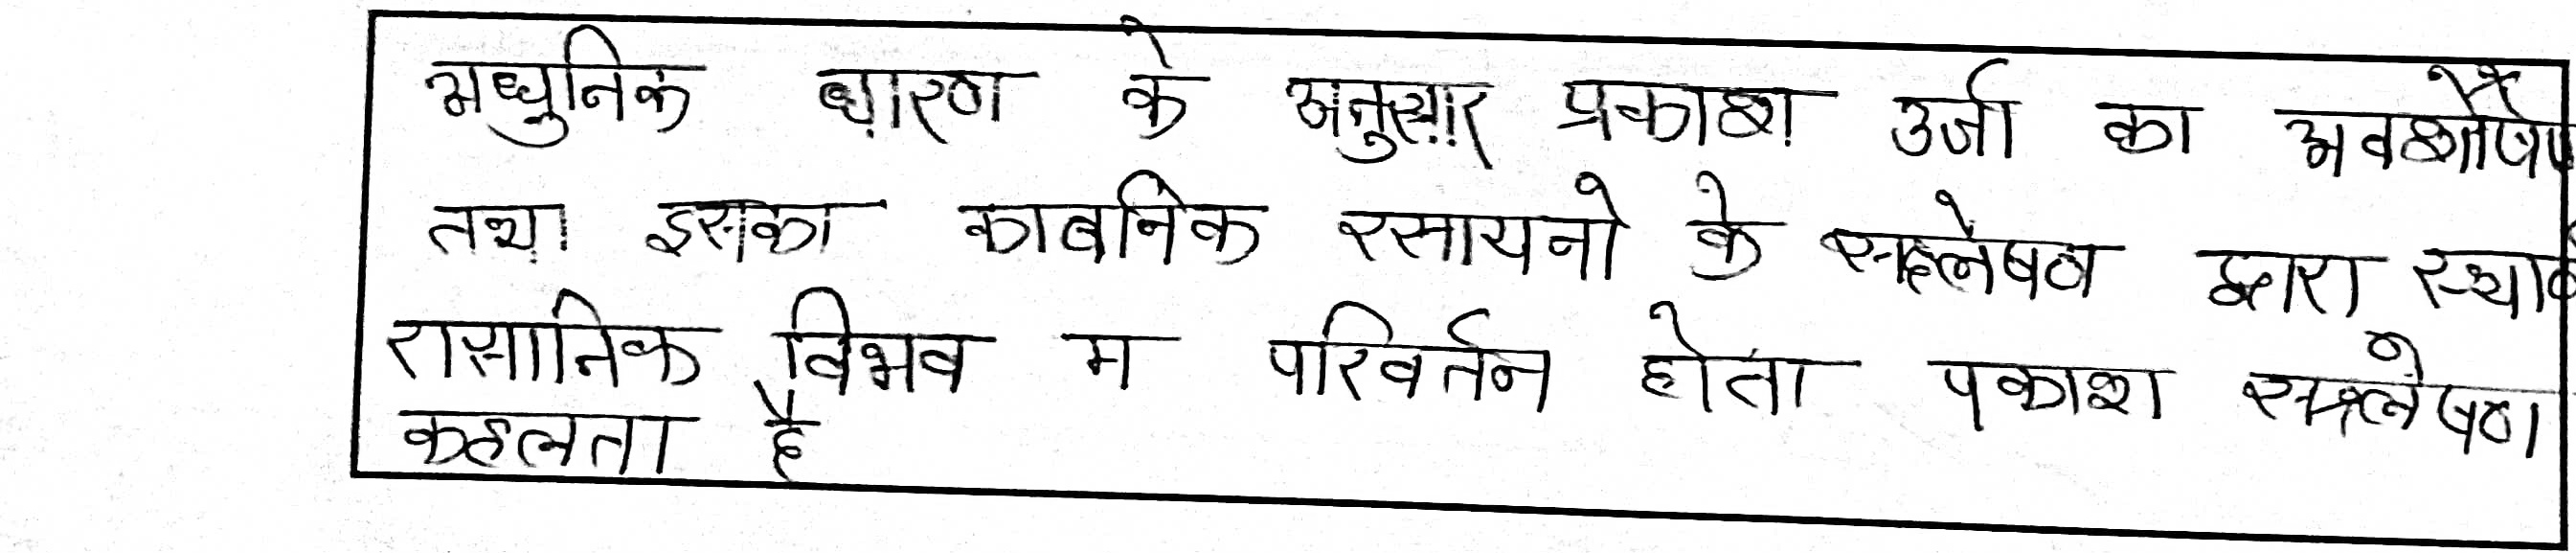 अधुनिक धारण के अनुसार प्रकाश उर्जा का अवशोषण
तथा इसका काबनिक रसायनो के सश्लेषण द्वारा
रासानिक विभव म परिवर्तन होता पकाश सश्लेषण
कहलता है